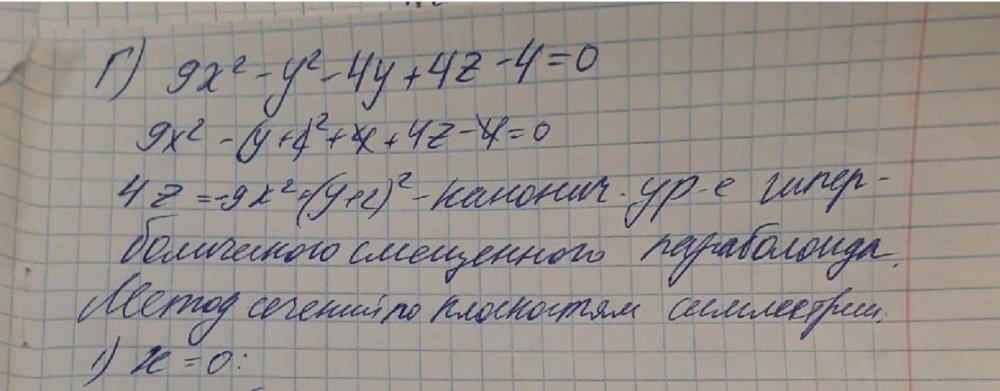 Г) 9x² - y² - 4y + 4z - 4 = 0
9x² - (y+2)² + 4 + 4z - 4 = 0
4z = -9x² + (y+2)² - канонич. ур-е гипер-
болического смещенного параболоида.
Метод сечений по плоскостям симметрии.
1) x = 0: